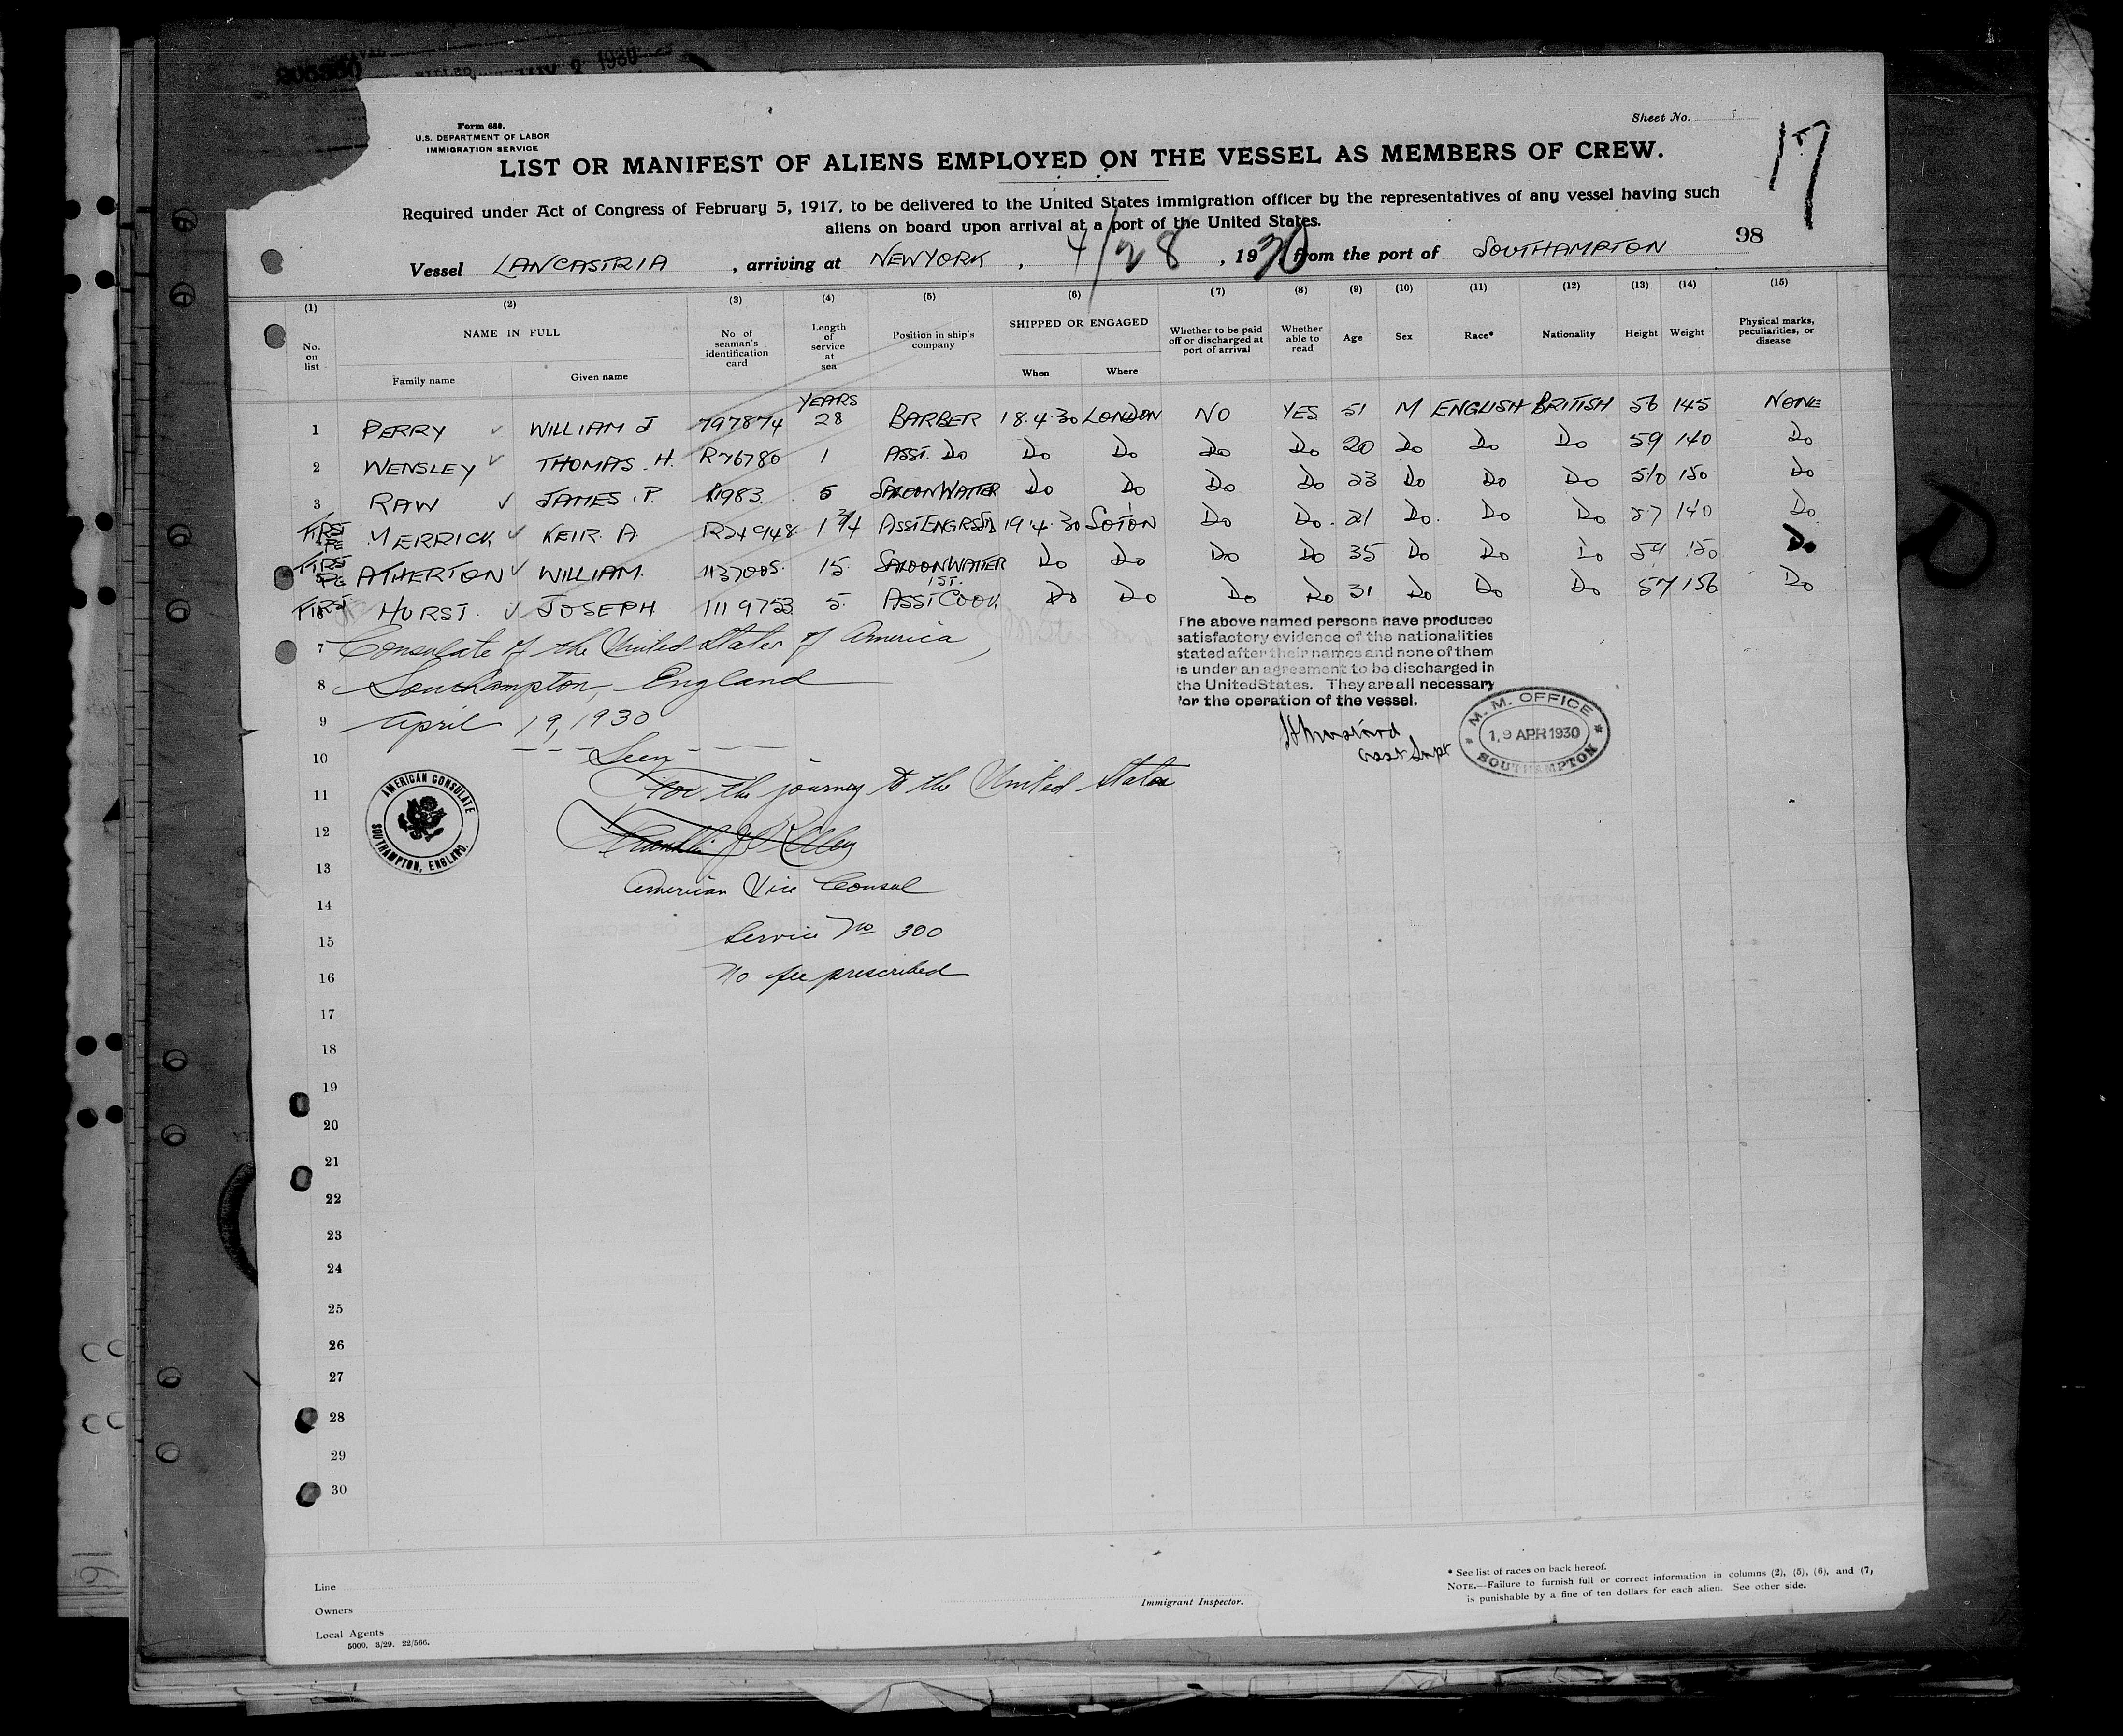 MAY 2 1930
Sheet No.
Form 680.
U.S. DEPARTMENT OF LABOR
IMMIGRATION SERVICE
17
LIST OR MANIFEST OF ALIENS EMPLOYED ON THE VESSEL AS MEMBERS OF CREW.
Required under Act of Congress of February 5, 1917, to be delivered to the United States immigration officer by the representatives of any vessel having such
aliens on board upon arrival at a port of the United States.
98
Vessel LANCASTRIA, arriving at NEW YORK, 4/28, 1930 from the port of SOUTHAMPTON
(1) (2) (3) (4) (5) (6) (7) (8) (9) (10) (11) (12) (13) (14) (15)
No. on list NAME IN FULL Family name Given name No. of seaman's identification card Length of service at sea Position in ship's company SHIPPED OR ENGAGED When Where Whether to be paid off or discharged at port of arrival Whether able to read Age Sex Race* Nationality Height Weight Physical marks, peculiarities, or disease
YEARS
1 PERRY WILLIAM J 797874 28 BARBER 18.4.30 LONDON NO YES 51 M ENGLISH BRITISH 56 145 NONE
2 WENSLEY THOMAS. H. R76780 1 ASST. Do Do Do Do Do 20 Do Do Do 59 140 Do
3 RAW JAMES. P. 5 SALOON WAITER Do Do Do Do 23 Do Do Do 5/10 150 Do
FIRST MERRICK KEIR. A. 1 3/4 19.4.30 SOTON Do Do. 21 Do. Do Do 57 140 Do
FIRST ATHERTON WILLIAM. 1137005. 15. SALOON WAITER Do Do Do Do 35 Do Do Do 59 150 Do
FIRST HURST. JOSEPH 1119753 5. 1ST. ASST COOK Do Do Do Do 31 Do Do Do 57 156 Do
7 Consulate of the United States of America,
8 Southampton, England
9 April 19, 1930
10 Seen
11 for the journey to the United States
12
13 American Vice Consul
14
15 Service No 300
16 No fee prescribed
The above named persons have produced
satisfactory evidence of the nationalities
stated after their names and none of them
is under an agreement to be discharged in
the United States. They are all necessary
for the operation of the vessel.
Asst Supt
M. M. OFFICE
19 APR 1930
SOUTHAMPTON
AMERICAN CONSULATE
SOUTHAMPTON, ENGLAND.
17
18
19
20
21
22
23
24
25
26
27
28
29
30
Line
Owners
Local Agents
5000. 3/29. 22/566.
Immigrant Inspector.
* See list of races on back hereof.
NOTE.—Failure to furnish full or correct information in columns (2), (5), (6), and (7,
is punishable by a fine of ten dollars for each alien. See other side.